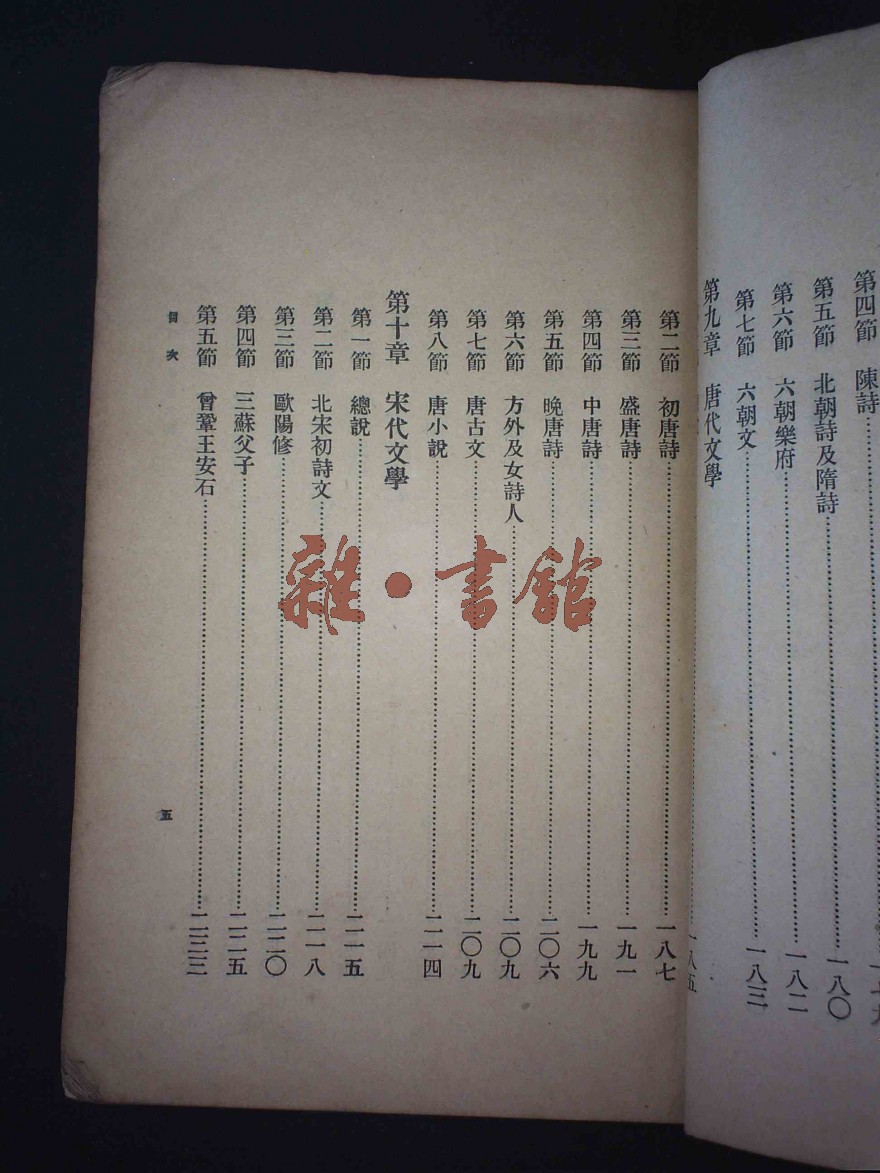 第四節　陳詩
第五節　北朝詩及隋詩……一八〇
第六節　六朝樂府……一八二
第七節　六朝文……一八三
第九章　唐代文學
一八五
第二節　初唐詩……一八七
第三節　盛唐詩……一九一
第四節　中唐詩……一九九
第五節　晚唐詩……二〇六
第六節　方外及女詩人……二〇九
第七節　唐古文……二〇九
第八節　唐小說……二一四
第十章　宋代文學
第一節　總說……二一五
第二節　北宋初詩文……二一八
第三節　歐陽修……二二〇
第四節　三蘇父子……二二五
第五節　曾鞏王安石……二三三
目次
五
雜・書館